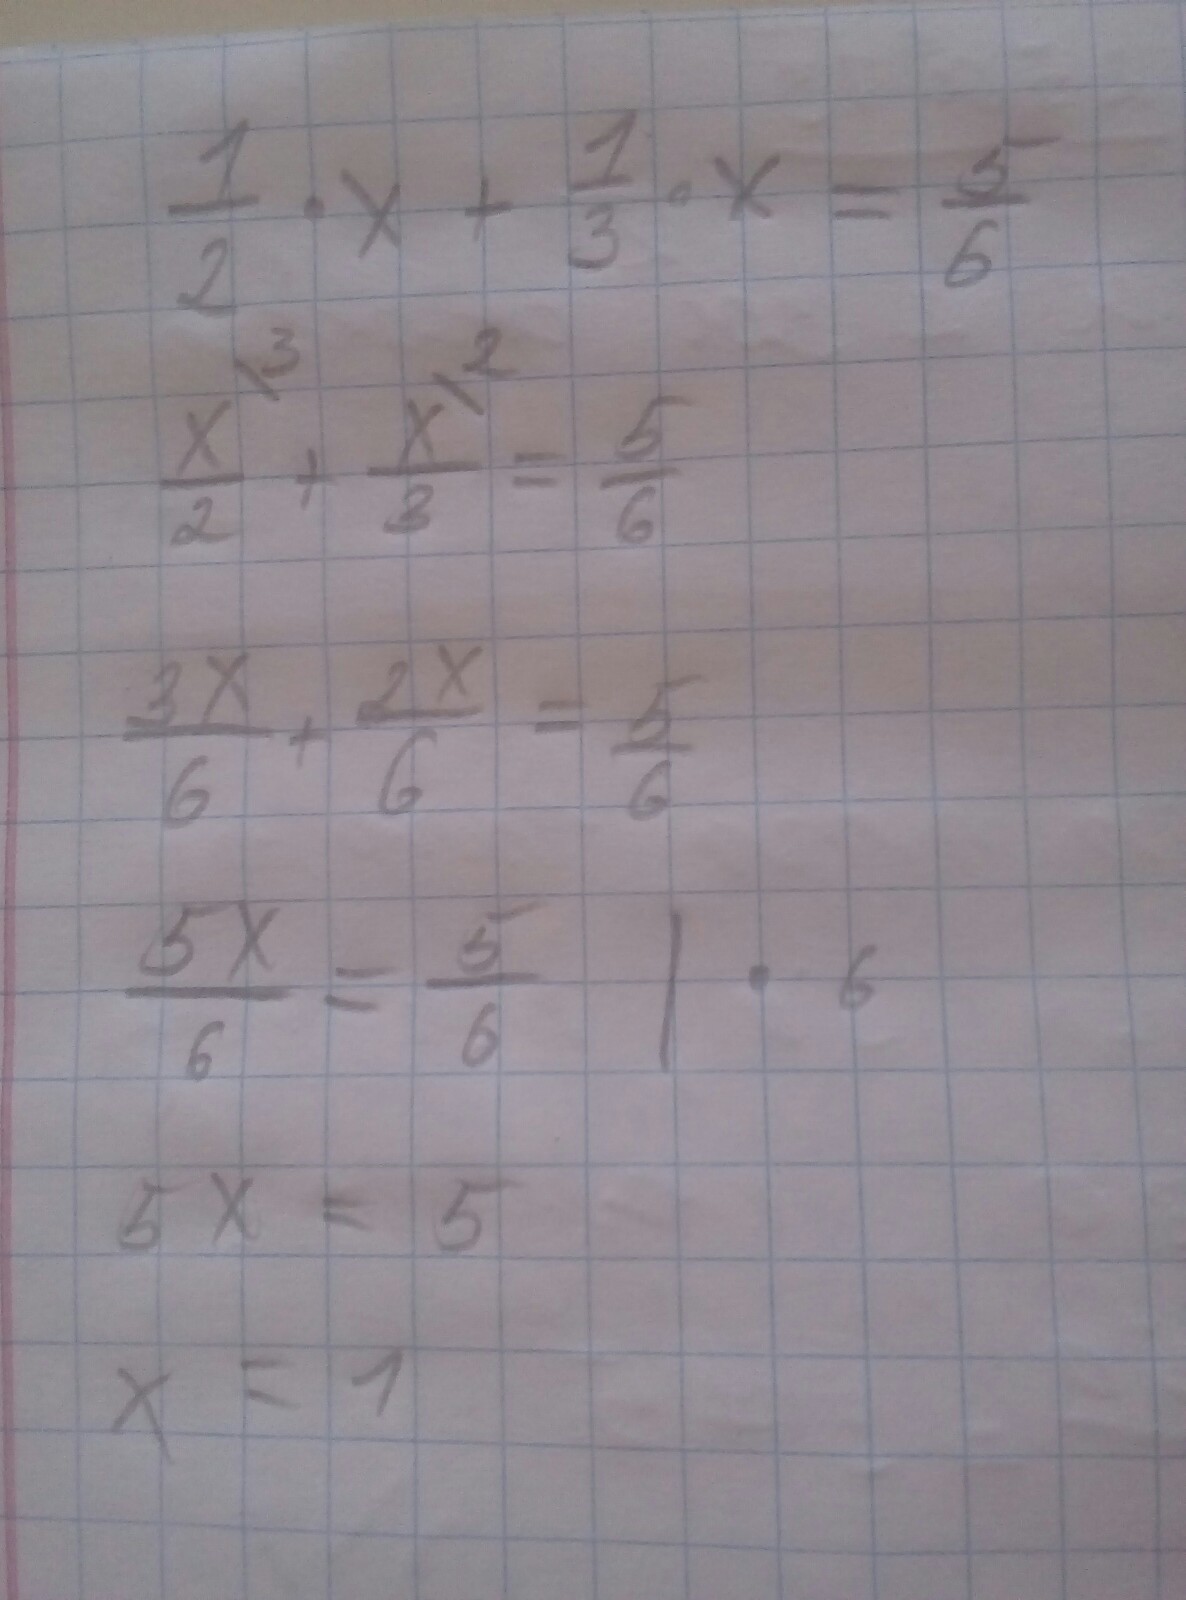 1/2 · x + 1/3 · x = 5/6
x\3/2 + x\2/3 = 5/6
3x/6 + 2x/6 = 5/6
5x/6 = 5/6 | · 6
5x = 5
x = 1